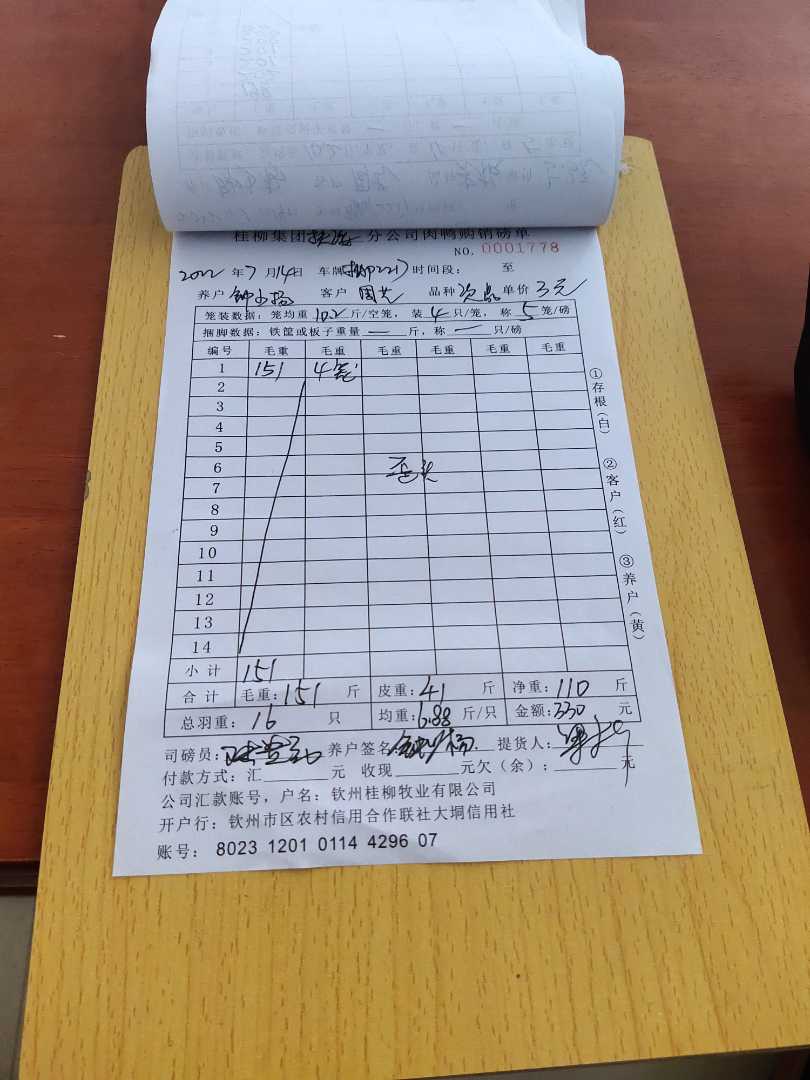 桂柳集团 分公司肉鸭购销磅单
NO. 0001778
2022 年 7 月 14 日 车牌 时间段: 至
养户 钟少扬 客户 周艺 品种 次品 单价 3元
笼装数据: 笼均重 10.2 斤/空笼, 装 4 只/笼, 称 5 笼/磅
捆脚数据: 铁筐或板子重量 — 斤, 称 — 只/磅
编号 毛重 毛重 毛重 毛重 毛重 毛重
1 151 4笼
2
3
4
5
6
歪头
7
8
9
10
11
12
13
14
小计 151
合计 毛重: 151 斤 皮重: 41 斤 净重: 110 斤
总羽重: 16 只 均重: 6.88 斤/只 金额: 330 元
司磅员: 养户签名: 钟少扬 提货人:
付款方式: 汇 元 收现 元欠(余): 元
公司汇款账号, 户名: 钦州桂柳牧业有限公司
开户行: 钦州市区农村信用合作联社大垌信用社
账号: 8023 1201 0114 4296 07
①存根(白)
②客户(红)
③养户(黄)